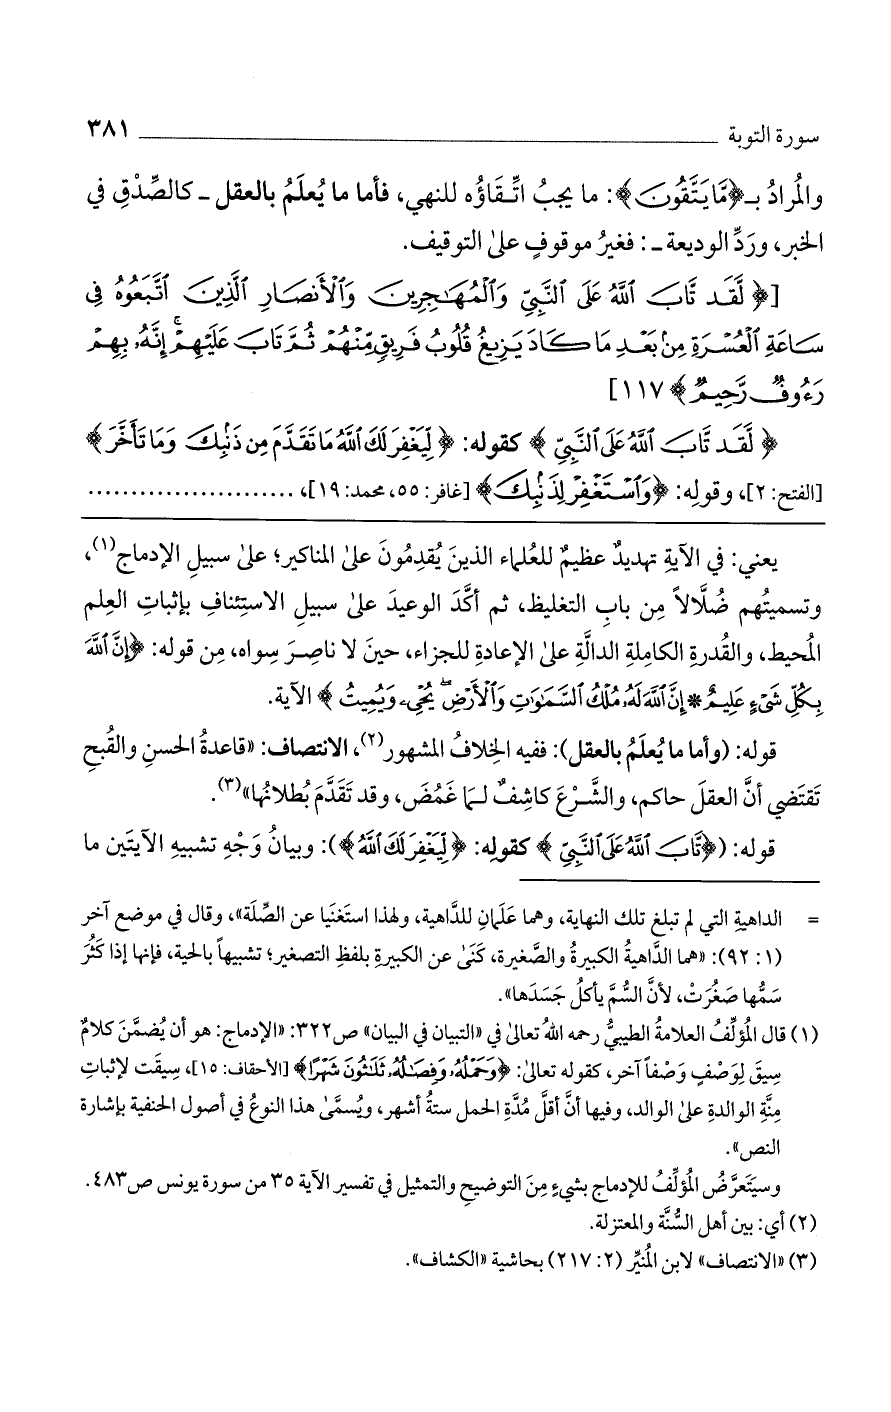 سورة التوبة ـــــــــــــــــــــــــــــــ ٣٨١
والمُرادُ بـ﴿مَّا يَتَّقُونَ﴾: ما يجبُ اتِّقاؤُه للنهي، فأما ما يُعلَمُ بالعقل ـ كالصِّدْقِ في
الخبر، ورَدِّ الوديعة ـ: فغيرُ موقوفٍ على التوقيف.
[﴿لَّقَد تَّابَ ٱللَّهُ عَلَى ٱلنَّبِيِّ وَٱلْمُهَـٰجِرِينَ وَٱلْأَنصَارِ ٱلَّذِينَ ٱتَّبَعُوهُ فِى
سَاعَةِ ٱلْعُسْرَةِ مِنۢ بَعْدِ مَا كَادَ يَزِيغُ قُلُوبُ فَرِيقٍ مِّنْهُمْ ثُمَّ تَابَ عَلَيْهِمْ ۚ إِنَّهُۥ بِهِمْ
رَءُوفٌ رَّحِيمٌ﴾ ١١٧]
﴿لَّقَد تَّابَ ٱللَّهُ عَلَى ٱلنَّبِيِّ﴾ كقوله: ﴿لِّيَغْفِرَ لَكَ ٱللَّهُ مَا تَقَدَّمَ مِن ذَنۢبِكَ وَمَا تَأَخَّرَ﴾
[الفتح: ٢]، وقولِه: ﴿وَٱسْتَغْفِرْ لِذَنۢبِكَ﴾ [غافر: ٥٥، محمد: ١٩]، ........................
يعني: في الآيةِ تهديدٌ عظيمٌ للعُلماء الذينَ يُقدِمُونَ على المناكير؛ على سبيلِ الإدماج(١)،
وتسميتُهم ضُلَّالاً مِن بابِ التغليظ، ثم أكَّدَ الوعيدَ على سبيلِ الاستِئنافِ بإثباتِ العِلمِ
المُحيط، والقُدرةِ الكاملةِ الدالَّةِ على الإعادةِ للجزاء، حينَ لا ناصِرَ سِواه، مِن قوله: ﴿إِنَّ ٱللَّهَ
بِكُلِّ شَىْءٍ عَلِيمٌ * إِنَّ ٱللَّهَ لَهُۥ مُلْكُ ٱلسَّمَـٰوَٰتِ وَٱلْأَرْضِ ۖ يُحْىِۦ وَيُمِيتُ﴾ الآية.
قوله: (وأما ما يُعلَمُ بالعقل): ففيه الخِلافُ المشهور(٢)، الانتصاف: «قاعدةُ الحسنِ والقُبحِ
تَقتَضي أنَّ العقلَ حاكم، والشَّرْعَ كاشِفٌ لمَا غَمُضَ، وقد تَقَدَّمَ بُطلانُها»(٣).
قوله: (﴿تَّابَ ٱللَّهُ عَلَى ٱلنَّبِيِّ﴾ كقولِه: ﴿لِّيَغْفِرَ لَكَ ٱللَّهُ﴾): وبيانُ وَجْهِ تشبيهِ الآيتَين ما
= الداهيةِ التي لم تبلغ تلك النهاية، وهما عَلَمانِ للدَّاهية، ولهذا استَغنَيا عن الصِّلَة»، وقال في موضع آخر
(١: ٩٢): «هما الدَّاهيةُ الكبيرةُ والصَّغيرة، كَنَىٰ عن الكبيرةِ بلفظِ التصغير؛ تشبيهاً بالحية، فإنها إذا كَثُرَ
سَمُّها صَغُرَتْ، لأنَّ السُّمَّ يأكلُ جَسَدَها».
(١) قال المُؤلِّفُ العلامةُ الطيبيُّ رحمه اللهُ تعالىٰ في «التبيان في البيان» ص٣٢٢: «الإدماج: هو أن يُضمَّنَ كلامٌ
سِيقَ لِوَصْفٍ وَصْفاً آخر، كقوله تعالىٰ: ﴿وَحَمْلُهُۥ وَفِصَـٰلُهُۥ ثَلَـٰثُونَ شَهْرًا﴾ [الأحقاف: ١٥]، سِيقَت لإثباتِ
مِنَّةِ الوالدةِ على الوالد، وفيها أنَّ أقلَّ مُدَّةِ الحمل ستةُ أشهر، ويُسمَّىٰ هذا النوعُ في أصول الحنفية بإشارة
النص».
وسيَتَعرَّضُ المُؤلِّفُ للإدماج بشيءٍ مِنَ التوضيحِ والتمثيل في تفسير الآية ٣٥ من سورة يونس ص٤٨٣.
(٢) أي: بين أهل السُّنَّة والمعتزلة.
(٣) «الانتصاف» لابن المُنيِّر (٢: ٢١٧) بحاشية «الكشاف».